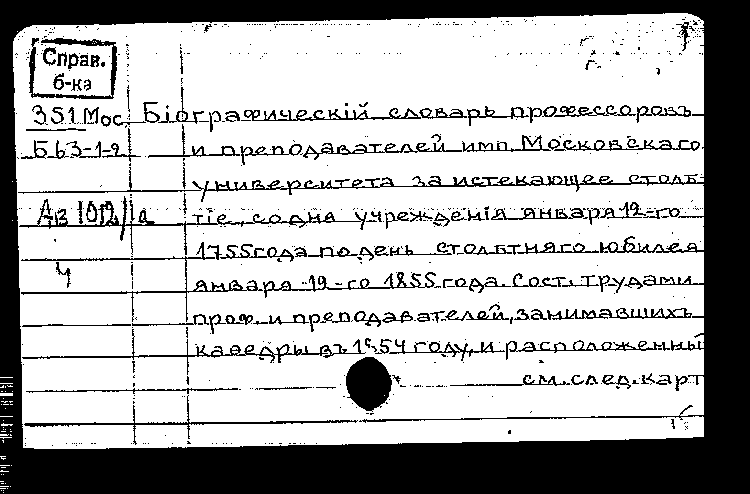 Справ.
б-ка
351 Мос. Біографическій словарь профессоровъ
Б63-1-2 и преподавателей имп. Московскаго
университета за истекающее столѣ-
Ав 1012/1а тіе, со дня учрежденія января 12-го
1755 года по день столѣтняго юбилея
Ч января 12-го 1855 года. Сост. трудами
проф. и преподавателей, занимавшихъ
кафедры въ 1854 году, и расположенны
см. след. карт